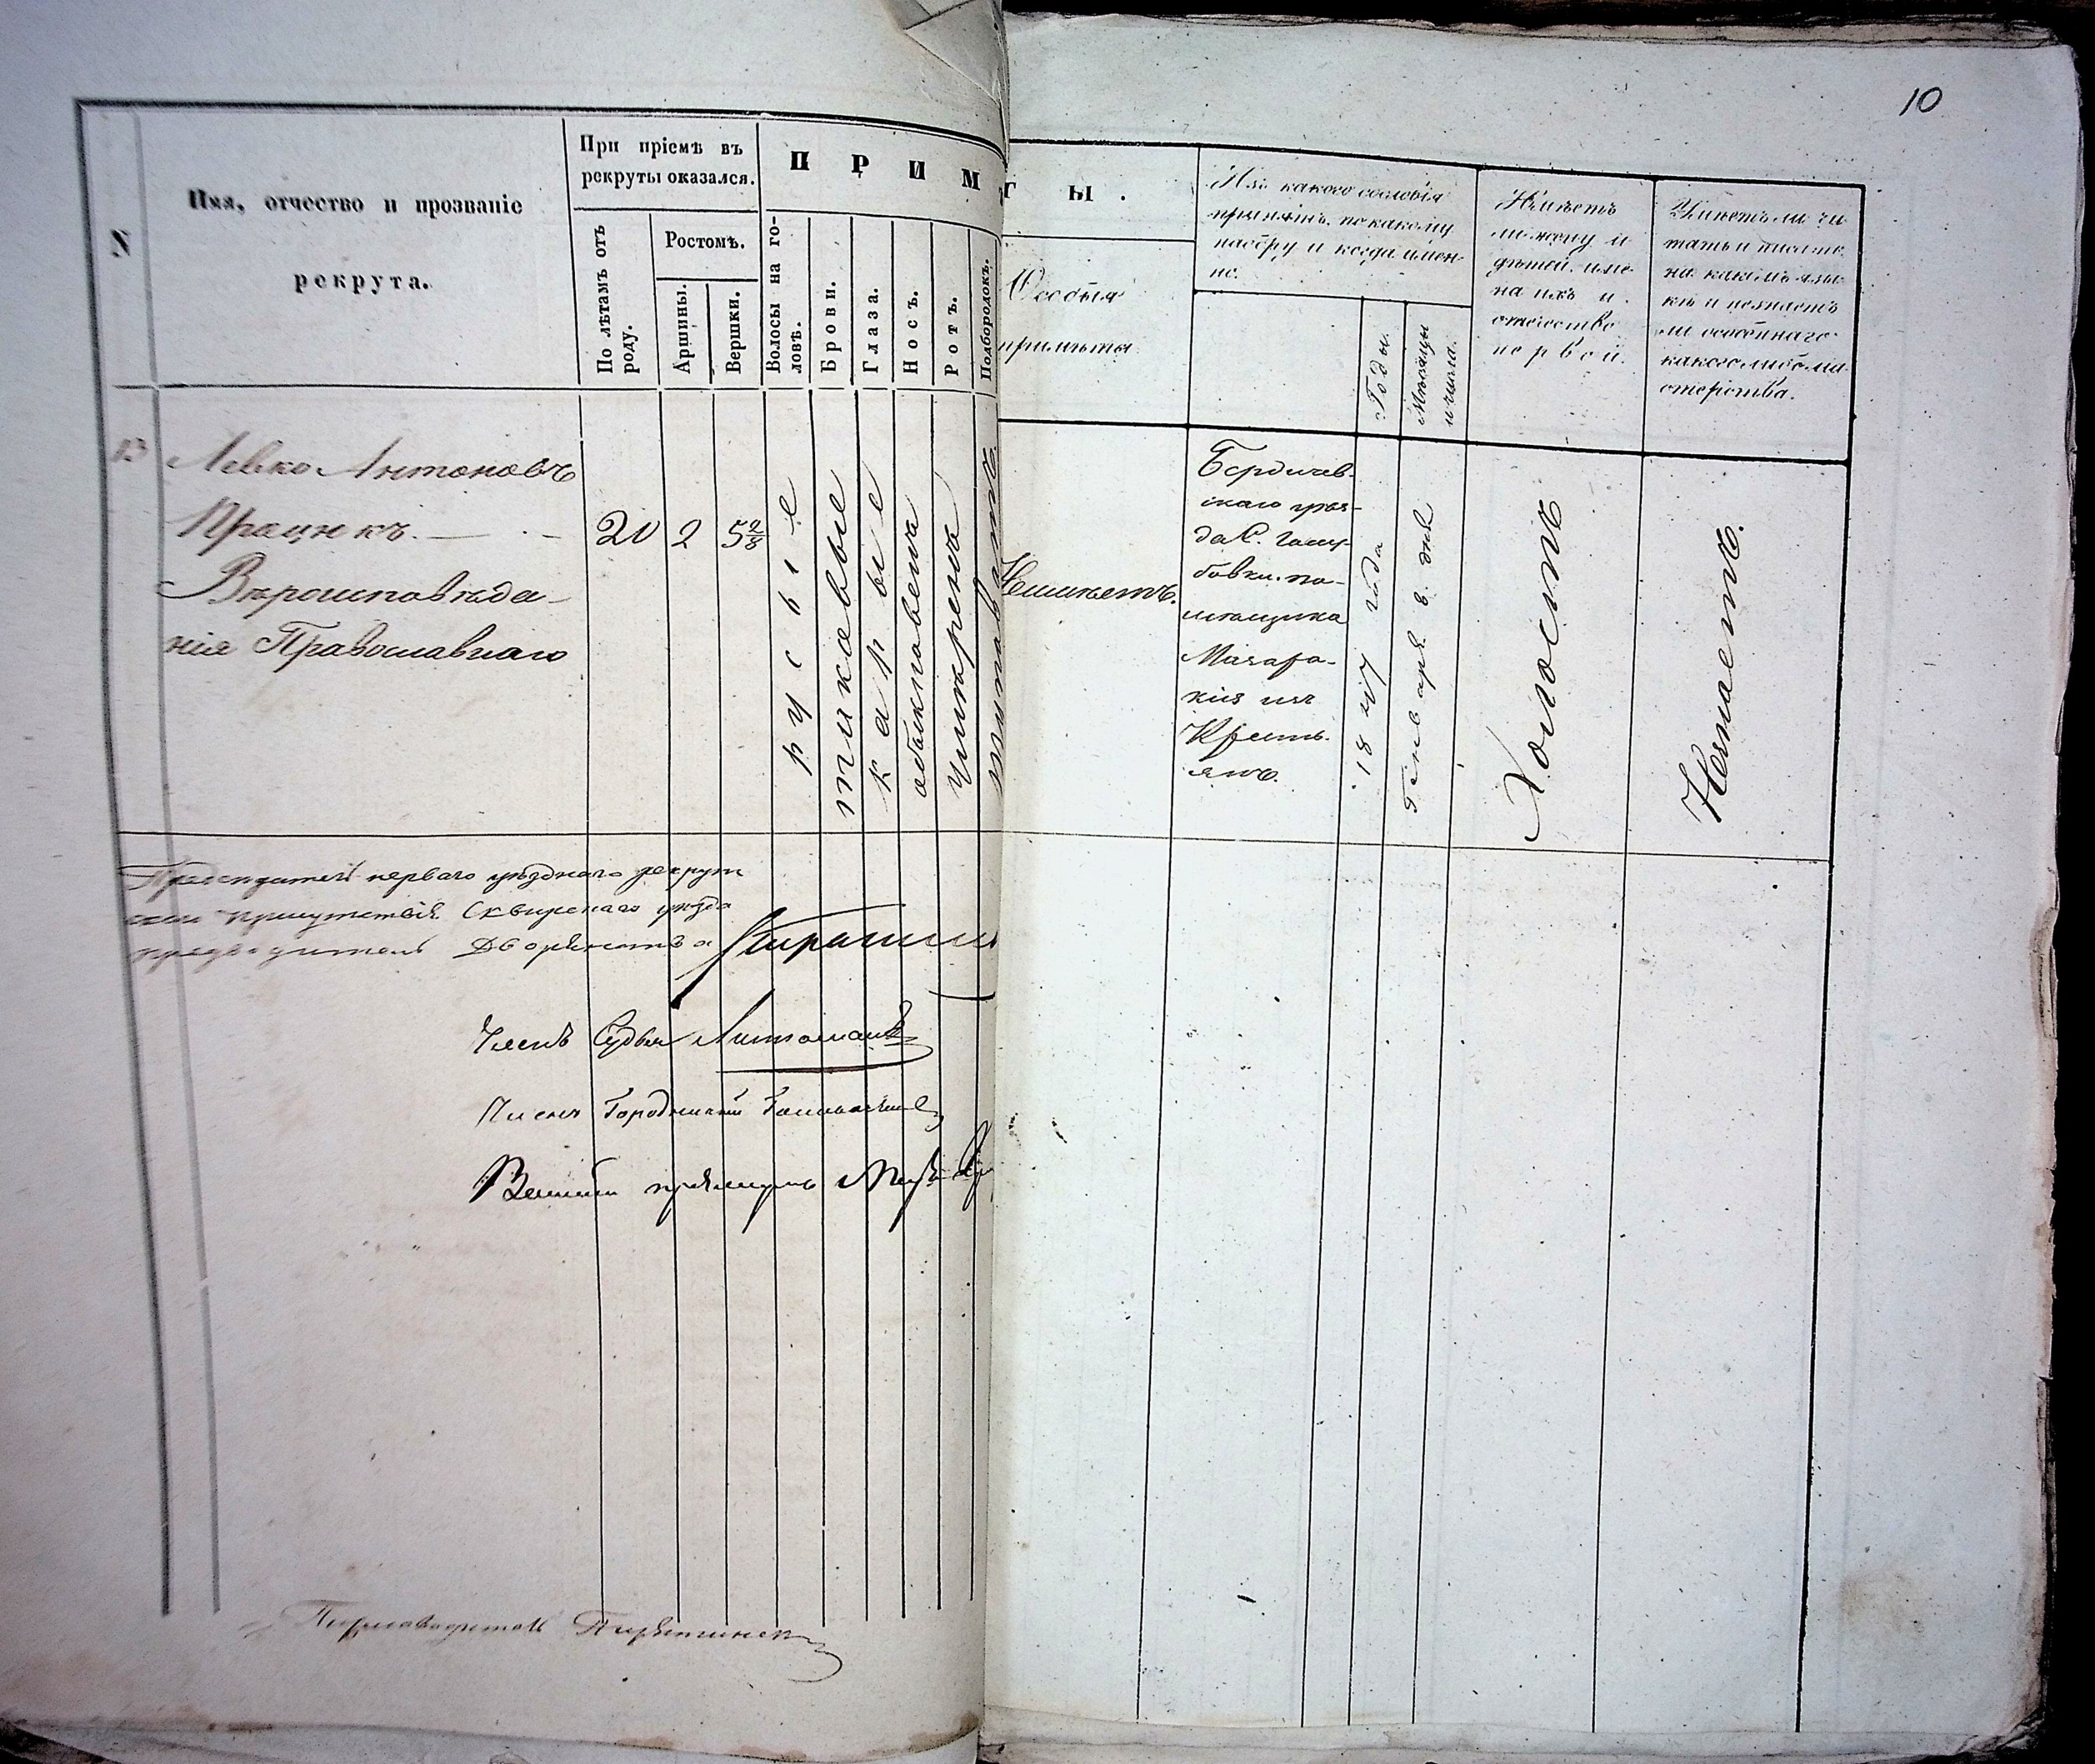 10
N
Имя, отчество и прозваніе
рекрута.
При пріемѣ въ
рекруты оказался.
По лѣтамъ отъ
роду.
Ростомъ.
Аршины.
Вершки.
П Р И М
Волосы на го-
ловѣ.
Брови.
Глаза.
Носъ.
Ротъ.
Подбородокъ.
Т Ы .
Особыя
примѣты
Изъ какого сословія
принятъ, по какому
набору и когда имен-
но.
Годы.
Мѣсяцы
и числа.
Имѣетъ
ли жену и
дѣтей, име-
на ихъ и
отчество
первой.
Умѣетъ ли чи-
тать и писать,
на какомъ язы-
кѣ и не знаетъ
ли особеннаго
какого либо ма-
стерства.
13
Левко Антоновъ
Вѣроисповѣда-
нія Православнаго
20
2
5 2/8
русые
таковые
карые
обыкновенъ
умѣренъ
Неимѣетъ.
Бердичев-
скаго уѣз-
да С.
помѣщика
изъ
Кресть-
янъ.
1847 года
Генваря 8 дня
Холостъ
Незнаетъ.
перваго уѣзднаго рекрут
скаго присутствія Сквирскаго уѣзда
предводитель Дворянства
Членъ Судья
Членъ Городничій
Военный пріемщикъ